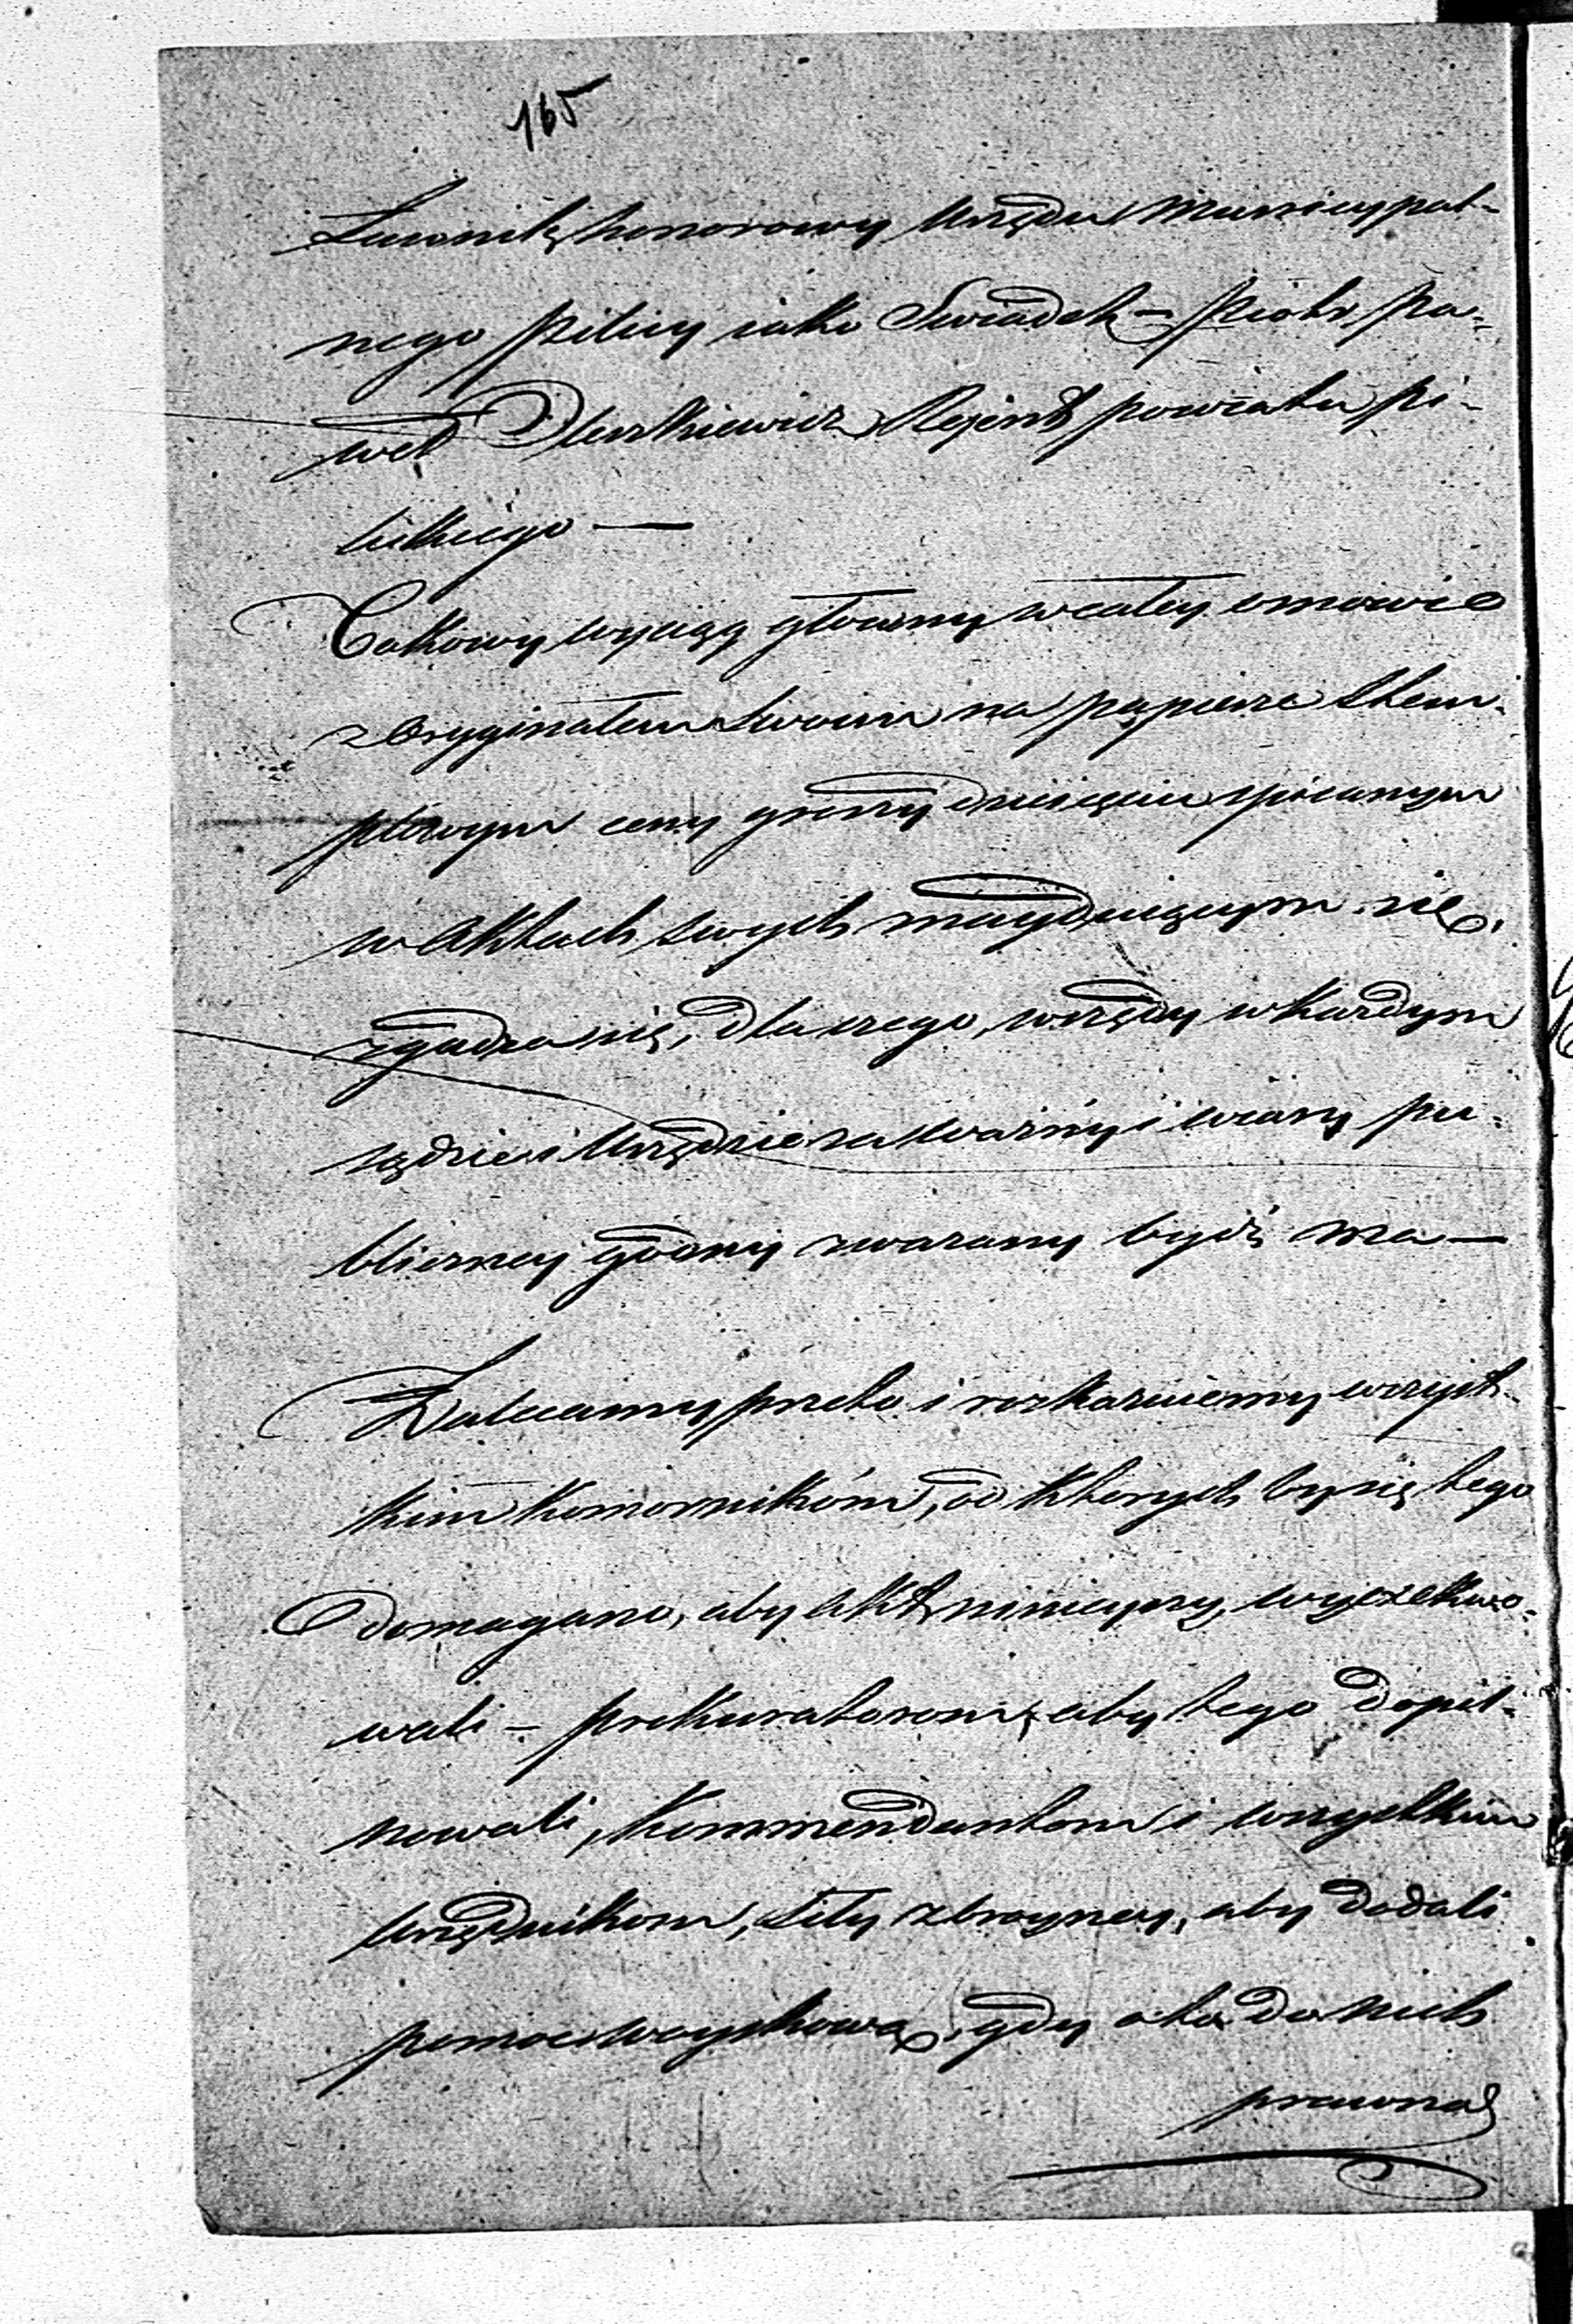 165
Ławnik honorowy Urzędu Municypal-
nego Pilicy iako Swiadek – Piotr Pa-
weł Rejent powiatu Pi-
lickiego —
Takowy wyciąg główny w całey osnowie
z Oryginałem Swoim na papierze Stem-
plowym ceny groszy dziesięciu spisanym
w Aktach swych znayduiącym się,
zgadza się, dla czego, wszędy w każdym
sądzie i Urzędzie za ważny i wiary pu-
bliczney godny uważany bydź ma —
Zalecamy przeto i rozkazuiemy wszyst-
kim Komornikom, od których by się tego
domagano, aby Akt ninieyszy, wyexekwo-
wali – Prokuratorom, aby tego dopil-
nowali, Kommendantom i wszystkim
Urzędnikom, Siły zbroyney, aby dodali
pomoc woyskową, gdy o to do nich
prawna